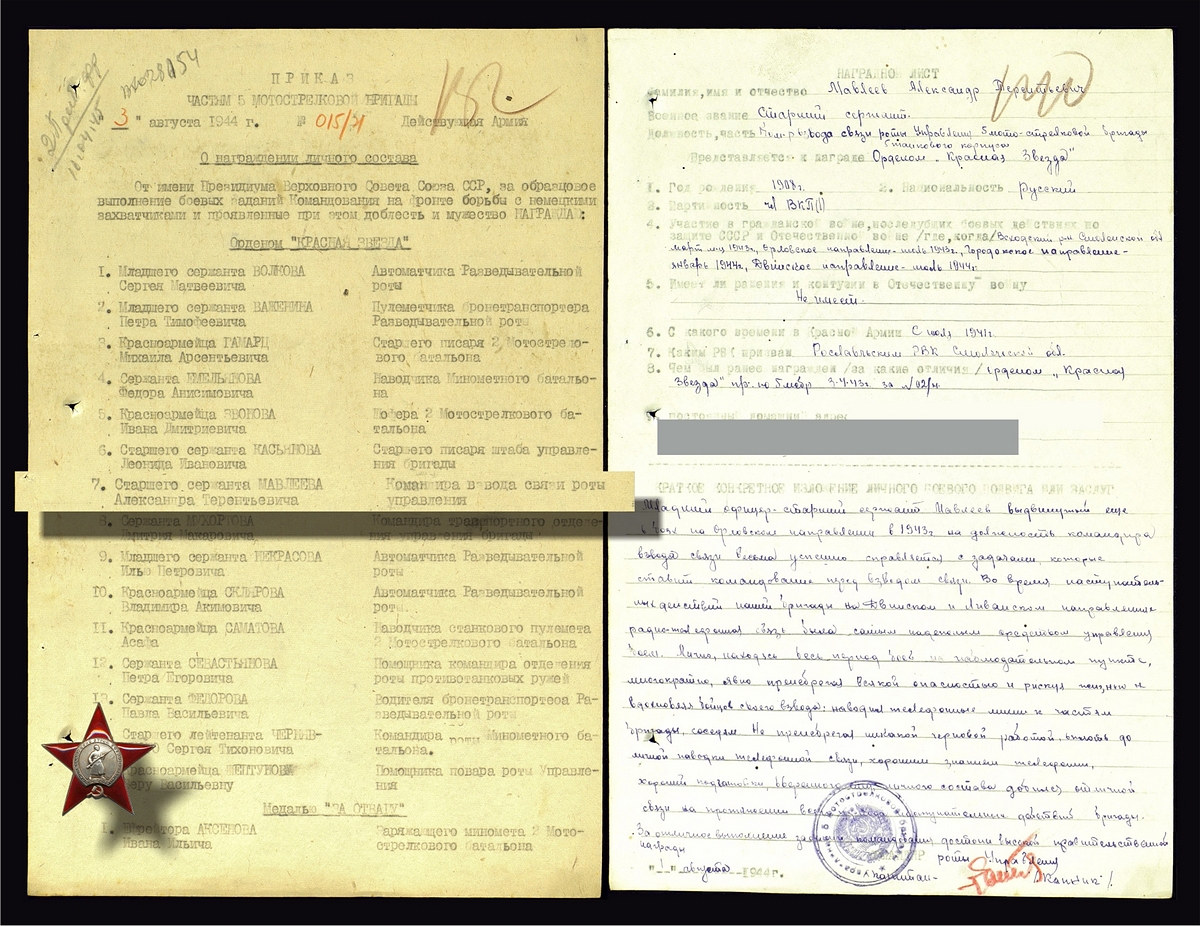 2 Приб фр
18.04.45
182
ПРИКАЗ
ЧАСТЯМ 5 МОТОСТРЕЛКОВОЙ БРИГАДЫ
" 3 " августа 1944 г. № 015/Н Действующая Армия
О награждении личного состава
От имени Президиума Верховного Совета Союза ССР, за образцовое
выполнение боевых заданий Командования на фронте борьбы с немецкими
захватчиками и проявленные при этом доблесть и мужество НАГРАЖДАЮ:
Орденом "КРАСНАЯ ЗВЕЗДА"
1. Младшего сержанта ВОЛКОВА Автоматчика Разведывательной
Сергея Матвеевича роты
2. Младшего сержанта ВАЖЕНИНА Пулеметчика бронетранспортера
Петра Тимофеевича Разведывательной роты
3. Красноармейца ГАМАРЦ Старшего писаря 2 Мотострелко-
Михаила Арсентьевича вого батальона
4. Сержанта ЕМЕЛЬЯНОВА Наводчика Минометного батальо-
Федора Анисимовича на
5. Красноармейца ЗВОНОВА Шофера 2 Мотострелкового ба-
Ивана Дмитриевича тальона
6. Старшего сержанта КАСЬЯНОВА Старшего писаря штаба управле-
Леонида Ивановича ния бригады
7. Старшего сержанта МАВЛЕЕВА Командира взвода связи роты
Александра Терентьевича управления
8. Сержанта МУХОРТОВА Командира транспортного отделе-
Дмитрия Макаровича ния управления бригады
9. Младшего сержанта НЕКРАСОВА Автоматчика Разведывательной
Илью Петровича роты
10. Красноармейца СКЛЯРОВА Автоматчика Разведывательной
Владимира Акимовича роты
11. Красноармейца САМАТОВА Наводчика станкового пулемета
Асафа 2 Мотострелкового батальона
12. Сержанта СЕВАСТЬЯНОВА Помощника командира отделения
Петра Егоровича роты противотанковых ружей
13. Сержанта ФЕДОРОВА Водителя бронетранспортеоа Ра-
Павла Васильевича зведывательной роты
Старшего лейтенанта ЧЕРНИЕ- Командира роты Минометного ба-
Сергея Тихоновича тальона.
Красноармейца ШЕПТУНОВУ Помощника повара роты Управле-
Веру Васильевну ния
Медалью "ЗА ОТВАГУ"
1. АКСЕНОВА Заряжающего миномета 2 Мото-
Ивана Ильича стрелкового батальона
НАГРАДНОЙ ЛИСТ
Фамилия, имя и отчество Мавлеев Александр Терентьевич
Военное звание Старший сержант.
Должность, часть Ком-р взвода связи роты Управления 5 мото-стрелковой бригады
5 танкового корпуса
Представляется к награде Орденом "Красная Звезда"
1. Год рождения 1908 г. 2. Национальность русский
3. Партийность чл ВКП(б)
4. Участие в гражданской войне, последующих боевых действиях по
защите СССР и Отечественной войне /где, когда/ Всходский р-н Смоленской обл
март м-ц 1943г, Орловское направление-июль 1943г., Городокское направление-
январь 1944г, Двинское направление-июль 1944г.
5. Имеет ли ранения и контузии в Отечественную войну
Не имеет.
6. С какого времени в Красной Армии С июля 1941г.
7. Каким РВК призван Рославльским РВК Смоленской обл.
8. Чем был ранее награжден /за какие отличия/ орденом "Красная
Звезда" пр. по 5 мсбр 3.4.43г. за №02/н.
9. Постоянный домашний адрес
КРАТКОЕ КОНКРЕТНОЕ ИЗЛОЖЕНИЕ ЛИЧНОГО БОЕВОГО ПОДВИГА ИЛИ ЗАСЛУГ
Младший офицер-старший сержант Мавлеев выдвинутый еще
в боях на Орловском направлении в 1943г на должность командира
взвода связи весьма успешно справляется с задачами, которые
ставит командование перед взводом связи. Во время наступатель-
ных действий нашей бригады на Двинском и Ливанском направлениях
радио-телефонная связь была самым надежным средством управления
боем. Лично, находясь весь период боев на наблюдательном пункте,
многократно, явно пренебрегая всякой опасностью и рискуя жизнью и
вдохновляя бойцов своего взвода, наводил телефонные линии к частям
бригады, соседям. Не пренебрегая никакой черновой работой, вплоть до
личной наводки телефонной связи, хорошим знанием телефонии,
хорошей подготовки вверенного ему личного состава добился отличной
связи на протяжении всех наступательных действий бригады.
За отличное выполнение заданий командования достоин высокой правительственной
награды
КОМАНДИР роты Управления
" 1 " августа 1944г. капитан- /Капник/.